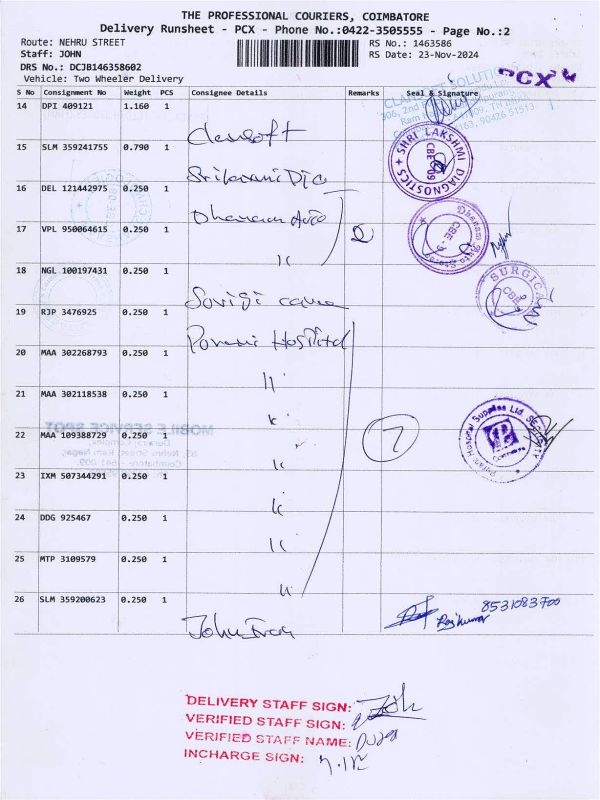 THE PROFESSIONAL COURIERS, COIMBATORE
Delivery Runsheet - PCX - Phone No.:0422-3505555 - Page No.:2
Route: NEHRU STREET
RS No.: 1463586
Staff: JOHN
RS Date: 23-Nov-2024
DRS No.: DCJB146358602
Vehicle: Two Wheeler Delivery
PCX
S No Consignment No Weight PCS Consignee Details Remarks Seal & Signature
14 DPI 409121 1.160 1
15 SLM 359241755 0.790 1
SHRI LAKSHMI DIAGNOSTICS CBE-09
16 DEL 121442975 0.250 1
17 VPL 950064615 0.250 1 "
2
Dhanam Auto Stores CBE-9
18 NGL 100197431 0.250 1
SURGICA
CBE
19 RJP 3476925 0.250 1 Hospital
20 MAA 302268793 0.250 1 "
21 MAA 302118538 0.250 1 "
22 MAA 109388729 0.250 1 "
7
Hospital Supplies Ltd. SECURITY
MOBILE SERVICE SPOT
23 IXM 507344291 0.250 1 "
24 DDG 925467 0.250 1 "
25 MTP 3109579 0.250 1 "
26 SLM 359200623 0.250 1 John
Rajkumar 8531083700
DELIVERY STAFF SIGN:
VERIFIED STAFF SIGN:
VERIFIED STAFF NAME:
INCHARGE SIGN: